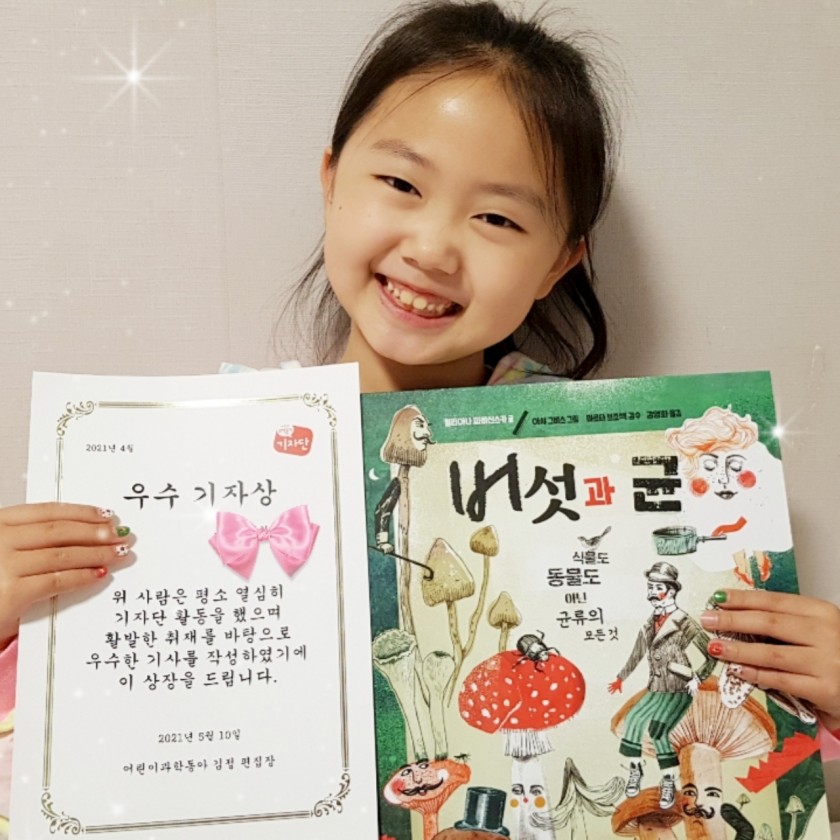 2021년 4월
기자단
우수 기자상
위 사람은 평소 열심히
기자단 활동을 했으며
활발한 취재를 바탕으로
우수한 기사를 작성하였기에
이 상장을 드립니다.
2021년 5월 10일
어린이과학동아 김정 편집장
릴리아나 파비신스카 글 / 아샤 그비스 그림 마르타 브조섹 감수 김영화 옮김
버섯과 균
식물도
동물도
아닌
균류의
모든 것